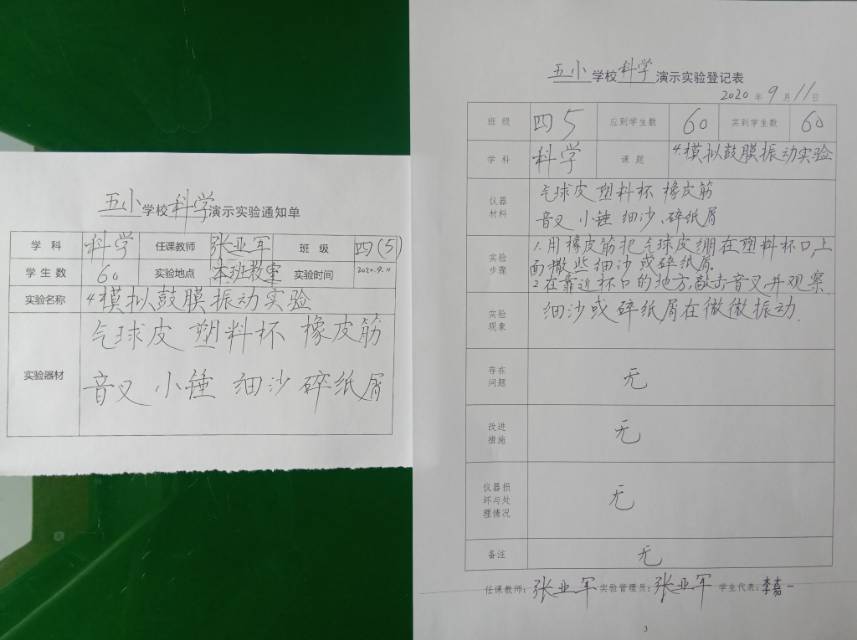 五小学校科学演示实验通知单
学科 科学 任课教师 张业军 班级 四(5)
学生数 60 实验地点 本班教室 实验时间 2020.9.11
实验名称 4.模拟鼓膜振动实验
气球皮 塑料杯 橡皮筋
实验器材
音叉 小锤 细沙 碎纸屑
五小学校科学演示实验登记表
2020年9月11日
班级 四5 应到学生数 60 实到学生数 60
学科 科学 课题 4.模拟鼓膜振动实验
仪器材料 气球皮 塑料杯 橡皮筋
音叉 小锤 细沙、碎纸屑
实验步骤 1.用橡皮筋把气球皮绷在塑料杯口,上
面撒些细沙或碎纸屑.
2.在靠近杯口的地方,敲击音叉并观察
实验现象 细沙或碎纸屑在微微振动.
存在问题 无
改进措施 无
仪器损坏与处理情况 无
备注 无
任课教师:张业军 实验管理员:张业军 学生代表:李嘉一
3